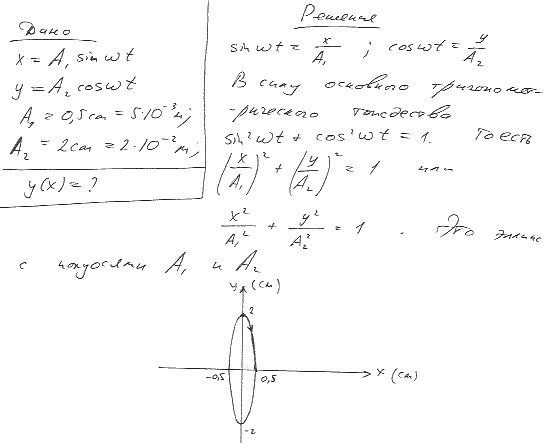 Дано
x = A₁ sin wt
y = A₂ cos wt
A₁ = 0,5 см = 5·10⁻³ м;
A₂ = 2 см = 2·10⁻² м;
y(x) = ?
Решение
sin wt = x/A₁ ; cos wt = y/A₂
В силу основного тригономет-
-рического тождества
sin² wt + cos² wt = 1. То есть
(x/A₁)² + (y/A₂)² = 1 или
x²/A₁² + y²/A₂² = 1 . Это эллипс
с полуосями A₁ и A₂
y (см)
2
-0,5
0,5
x (см)
-2